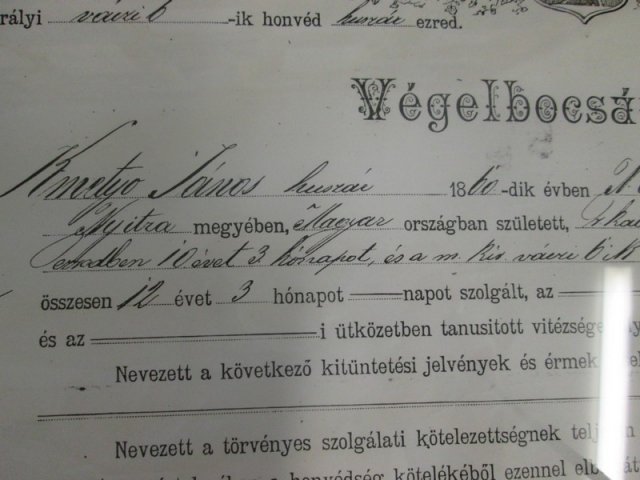 rályi váczi 6 -ik honvéd huszár ezred.
Végelbocsá
Kmetyo János huszár 1860-dik évben N
Nyitra megyében, Magyar országban született,
ezredben 10 évet 3 hónapot, és a m. kir. váczi 6 ik
összesen 12 évet 3 hónapot napot szolgált, az
és az i ütközetben tanusitott vitézsége
Nevezett a következő kitüntetési jelvények és érmek
Nevezett a törvényes szolgálati kötelezettségnek
a honvédség kötelékéből ezennel